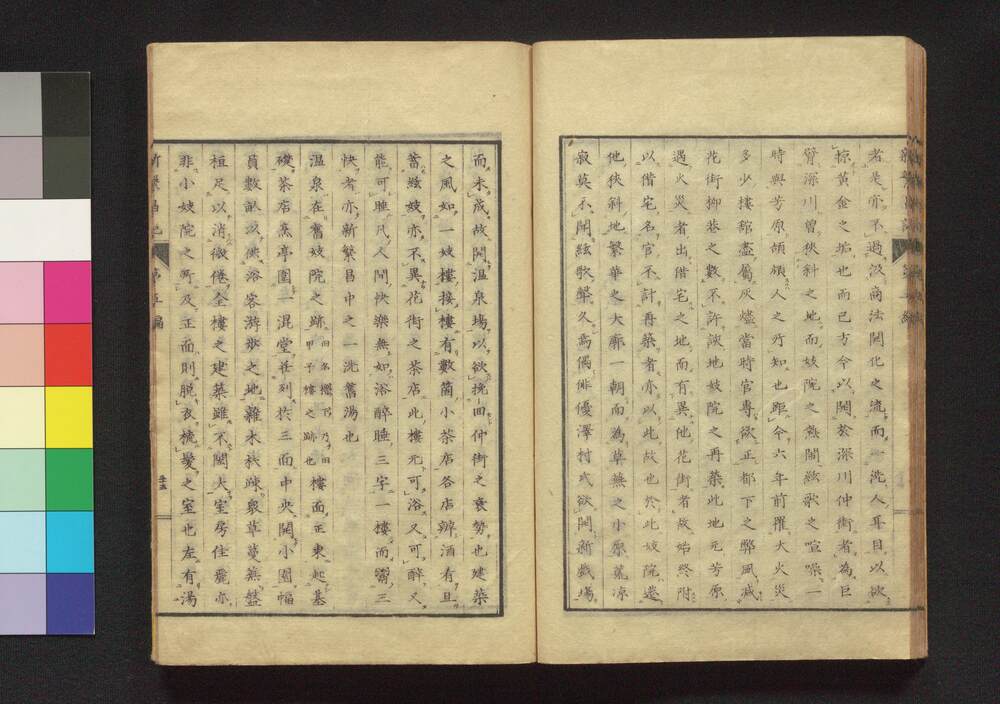 者是亦不過溺商法開化之流而一洗人耳目以欲
掠黃金之垢也而已方今以開於深川仲街者為巨
臂深川曾狹斜之地而妓院之熱鬧絃歌之喧噪一
時與芳原頡頏人之所知也距今六年前罹大火災
多少樓館盡屬灰燼當時官專欲正都下之弊風减
花街柳巷之數不許該地妓院之再築此地元芳原
遇火災者出借宅之地而有異他花街者故始終附
以借宅名官不計再築者亦以此故也於此妓院遷
他狹斜地繁華之大廓一朝而為草蕪之小原荒凉
寂莫不聞絃歌聲久焉俩俳優澤村氏欲開新戲場
而未成故開温泉場以欲挽回仲街之衰勢也建築
之風如一妓樓接樓有數箇小茶店各店辨酒有且
蓄絃妓亦不異花街之茶店此樓元可浴又可醉又
能可睡凡人間快樂無如浴醉睡三字一樓而鬻三
快者亦新繁昌中之一洗舊湯也
温泉在舊妓院之跡 樓面正東起基
礎茶店烹亭圍一混堂並列於三面中央開小園幅
員數畝以供浴客游步之地雜木扶疎衆草蔓蕪盤
桓足以消微倦全樓之建築雖不闊大室房住麗亦
非小妓院之所及正面則脱衣梳髮之室也左有湯
新繁昌記 第五編